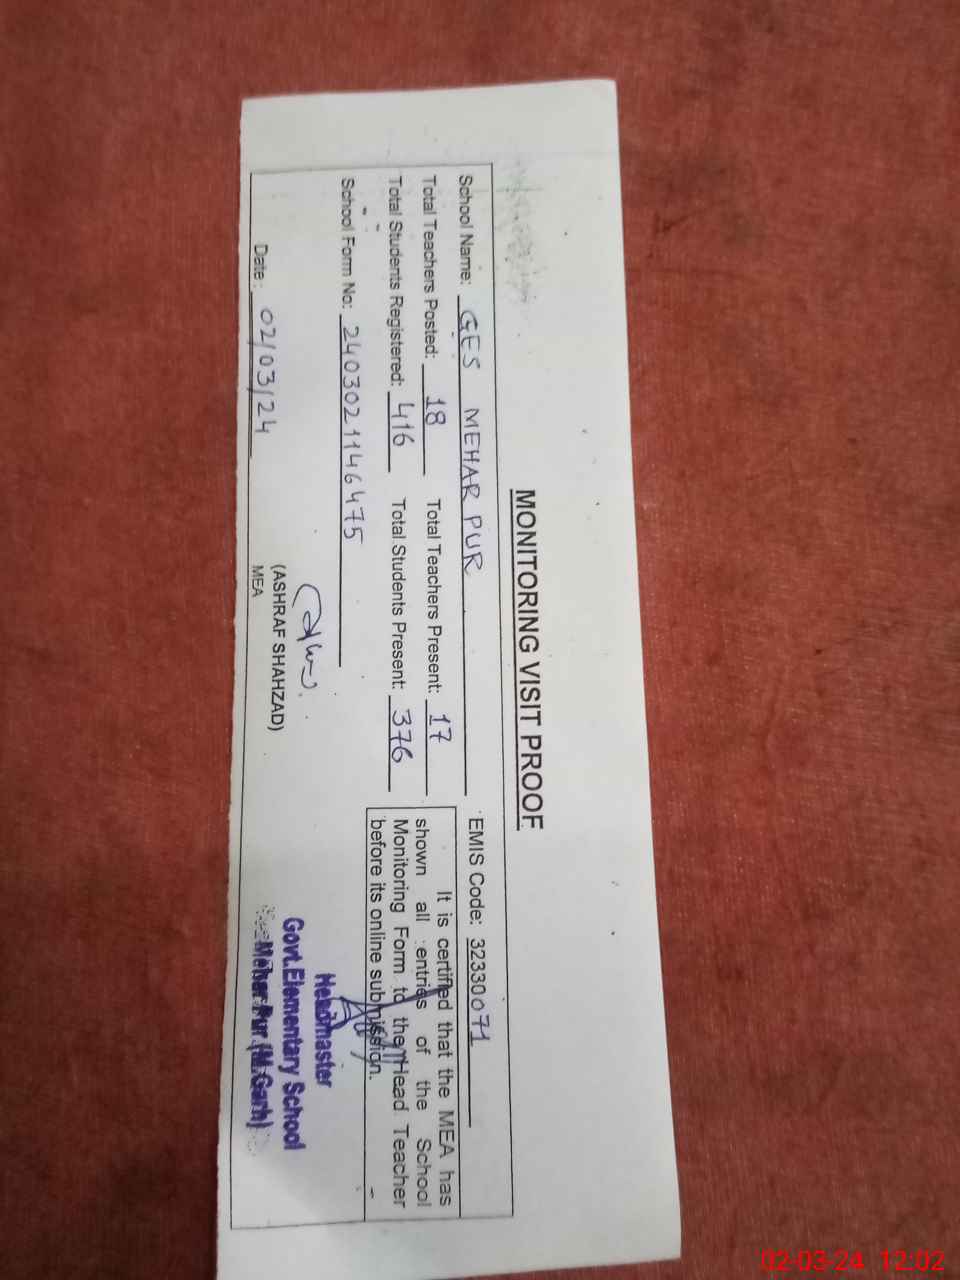 MONITORING VISIT PROOF
School Name: GES MEHAR PUR EMIS Code: 32330071
Total Teachers Posted: 18 Total Teachers Present: 17
Total Students Registered: 416 Total Students Present: 376
School Form No: 2403021146475
It is certified that the MEA has
shown all entries of the School
Monitoring Form to the Head Teacher
before its online submission.
Date: 02/03/24
(ASHRAF SHAHZAD)
MEA
Headmaster
Govt.Elementary School
Mehar Pur (M.Garh)
02-03-24 12:02